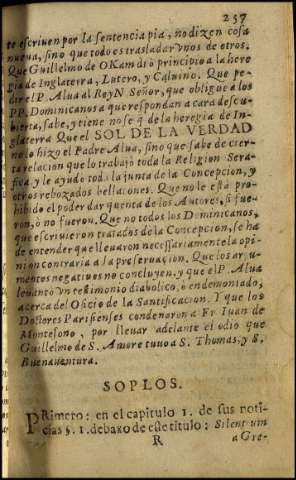 257
te escriuen por la sentencia pia, no dizen cosa
nueua, sino que todo es trasladar vnos de otros.
Que Guillelmo de OKam diò principio a la here
gia de Inglaterra, Lutero, y Caluino. Que pe-
dir el P. Alua al Rey N Señor, que obligue a los
PP. Dominicanos a que respondan a cara descu-
bierta, sabe, y tiene no se q̃ de la heregia de In-
glaterra Que el SOL DE LA VERDAD
no lo hizo el Padre Alua, sino que sabe de cier-
ta relacion que lo trabajò toda la Religion Sera-
fica y le ayudò toda la junta de la Concepcion, y
otros rebozados bellacones. Que no le està pro-
hibido el poder dar quenta de los Autores, si fue-
ron, ò no fueron. Que no todos los Dominicanos,
que escriuieron tratados de la Concepcion, se ha
de entender que lleuaron necessariamente la opi-
nion contraria a la preseruacion. Que los argu-
mentos negatiuos no concluyen, y que el P. Alua
leuantò vn testimonio diabolico, ò endemoniado,
acerca del Oficio de la Santificacion. Y que los
Doctores Parisienses condenaron a Fr Iuan de
Montesono, por lleuar adelante el odio que
Guillelmo de S. Amore tuuo a S. Thomas, y S.
Buenauentura.
SOPLOS.
PRimero: en el capitulo 1. de sus noti-
cias §. 1. debaxo de este titulo: Silentium
R
a Gre-